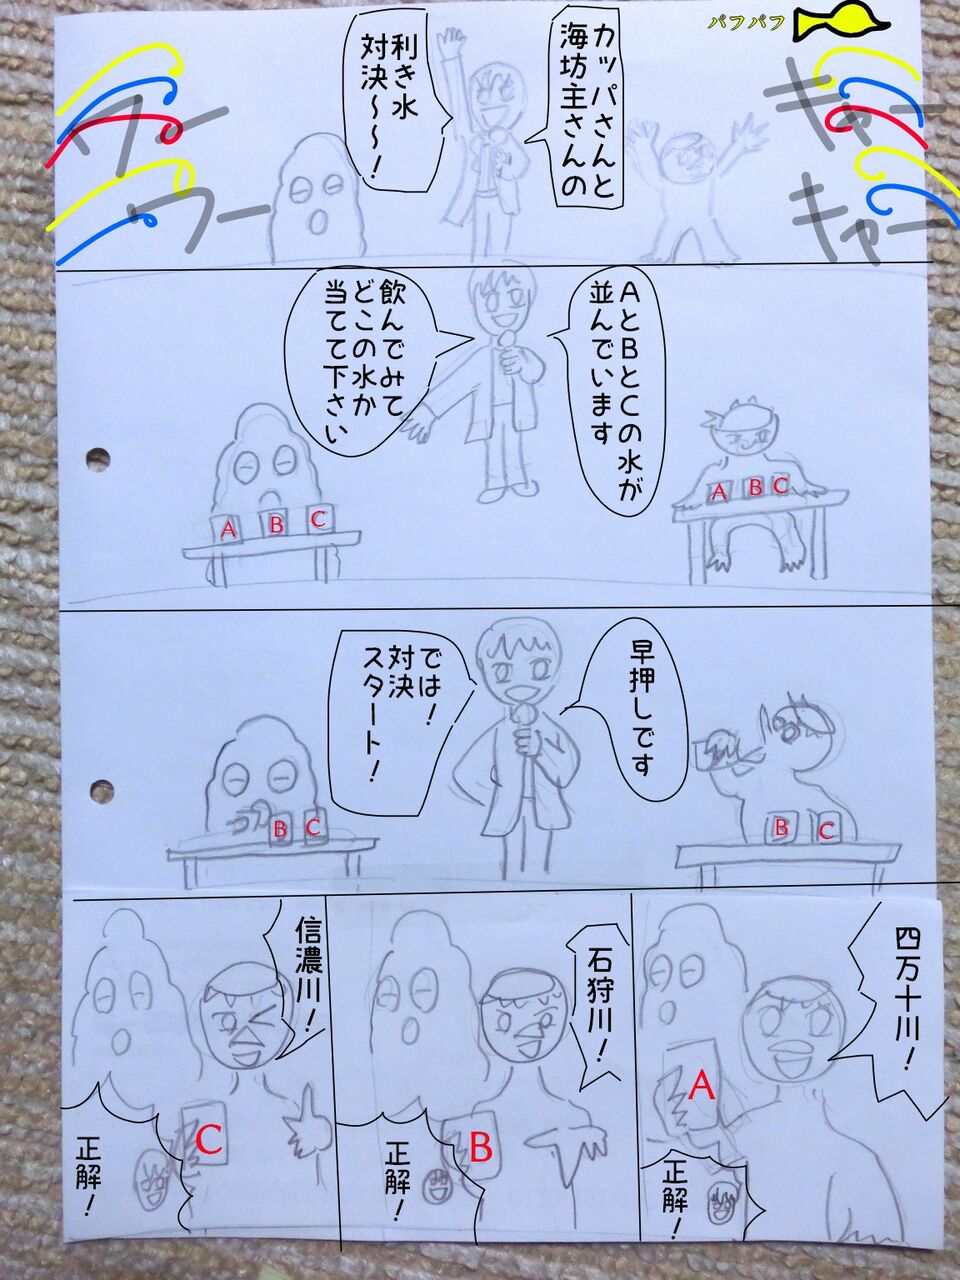 パフパフ
キャー
キャー
カッパさんと
海坊主さんの
利き水
対決～～！
ワー
ワー
AとBとCの水が
並んでいます
飲んでみて
どこの水か
当てて下さい
A B C
A B C
早押しです
では！
対決
スタート！
B C
B C
四万十川！
A
正解！
石狩川！
B
正解！
信濃川！
C
正解！